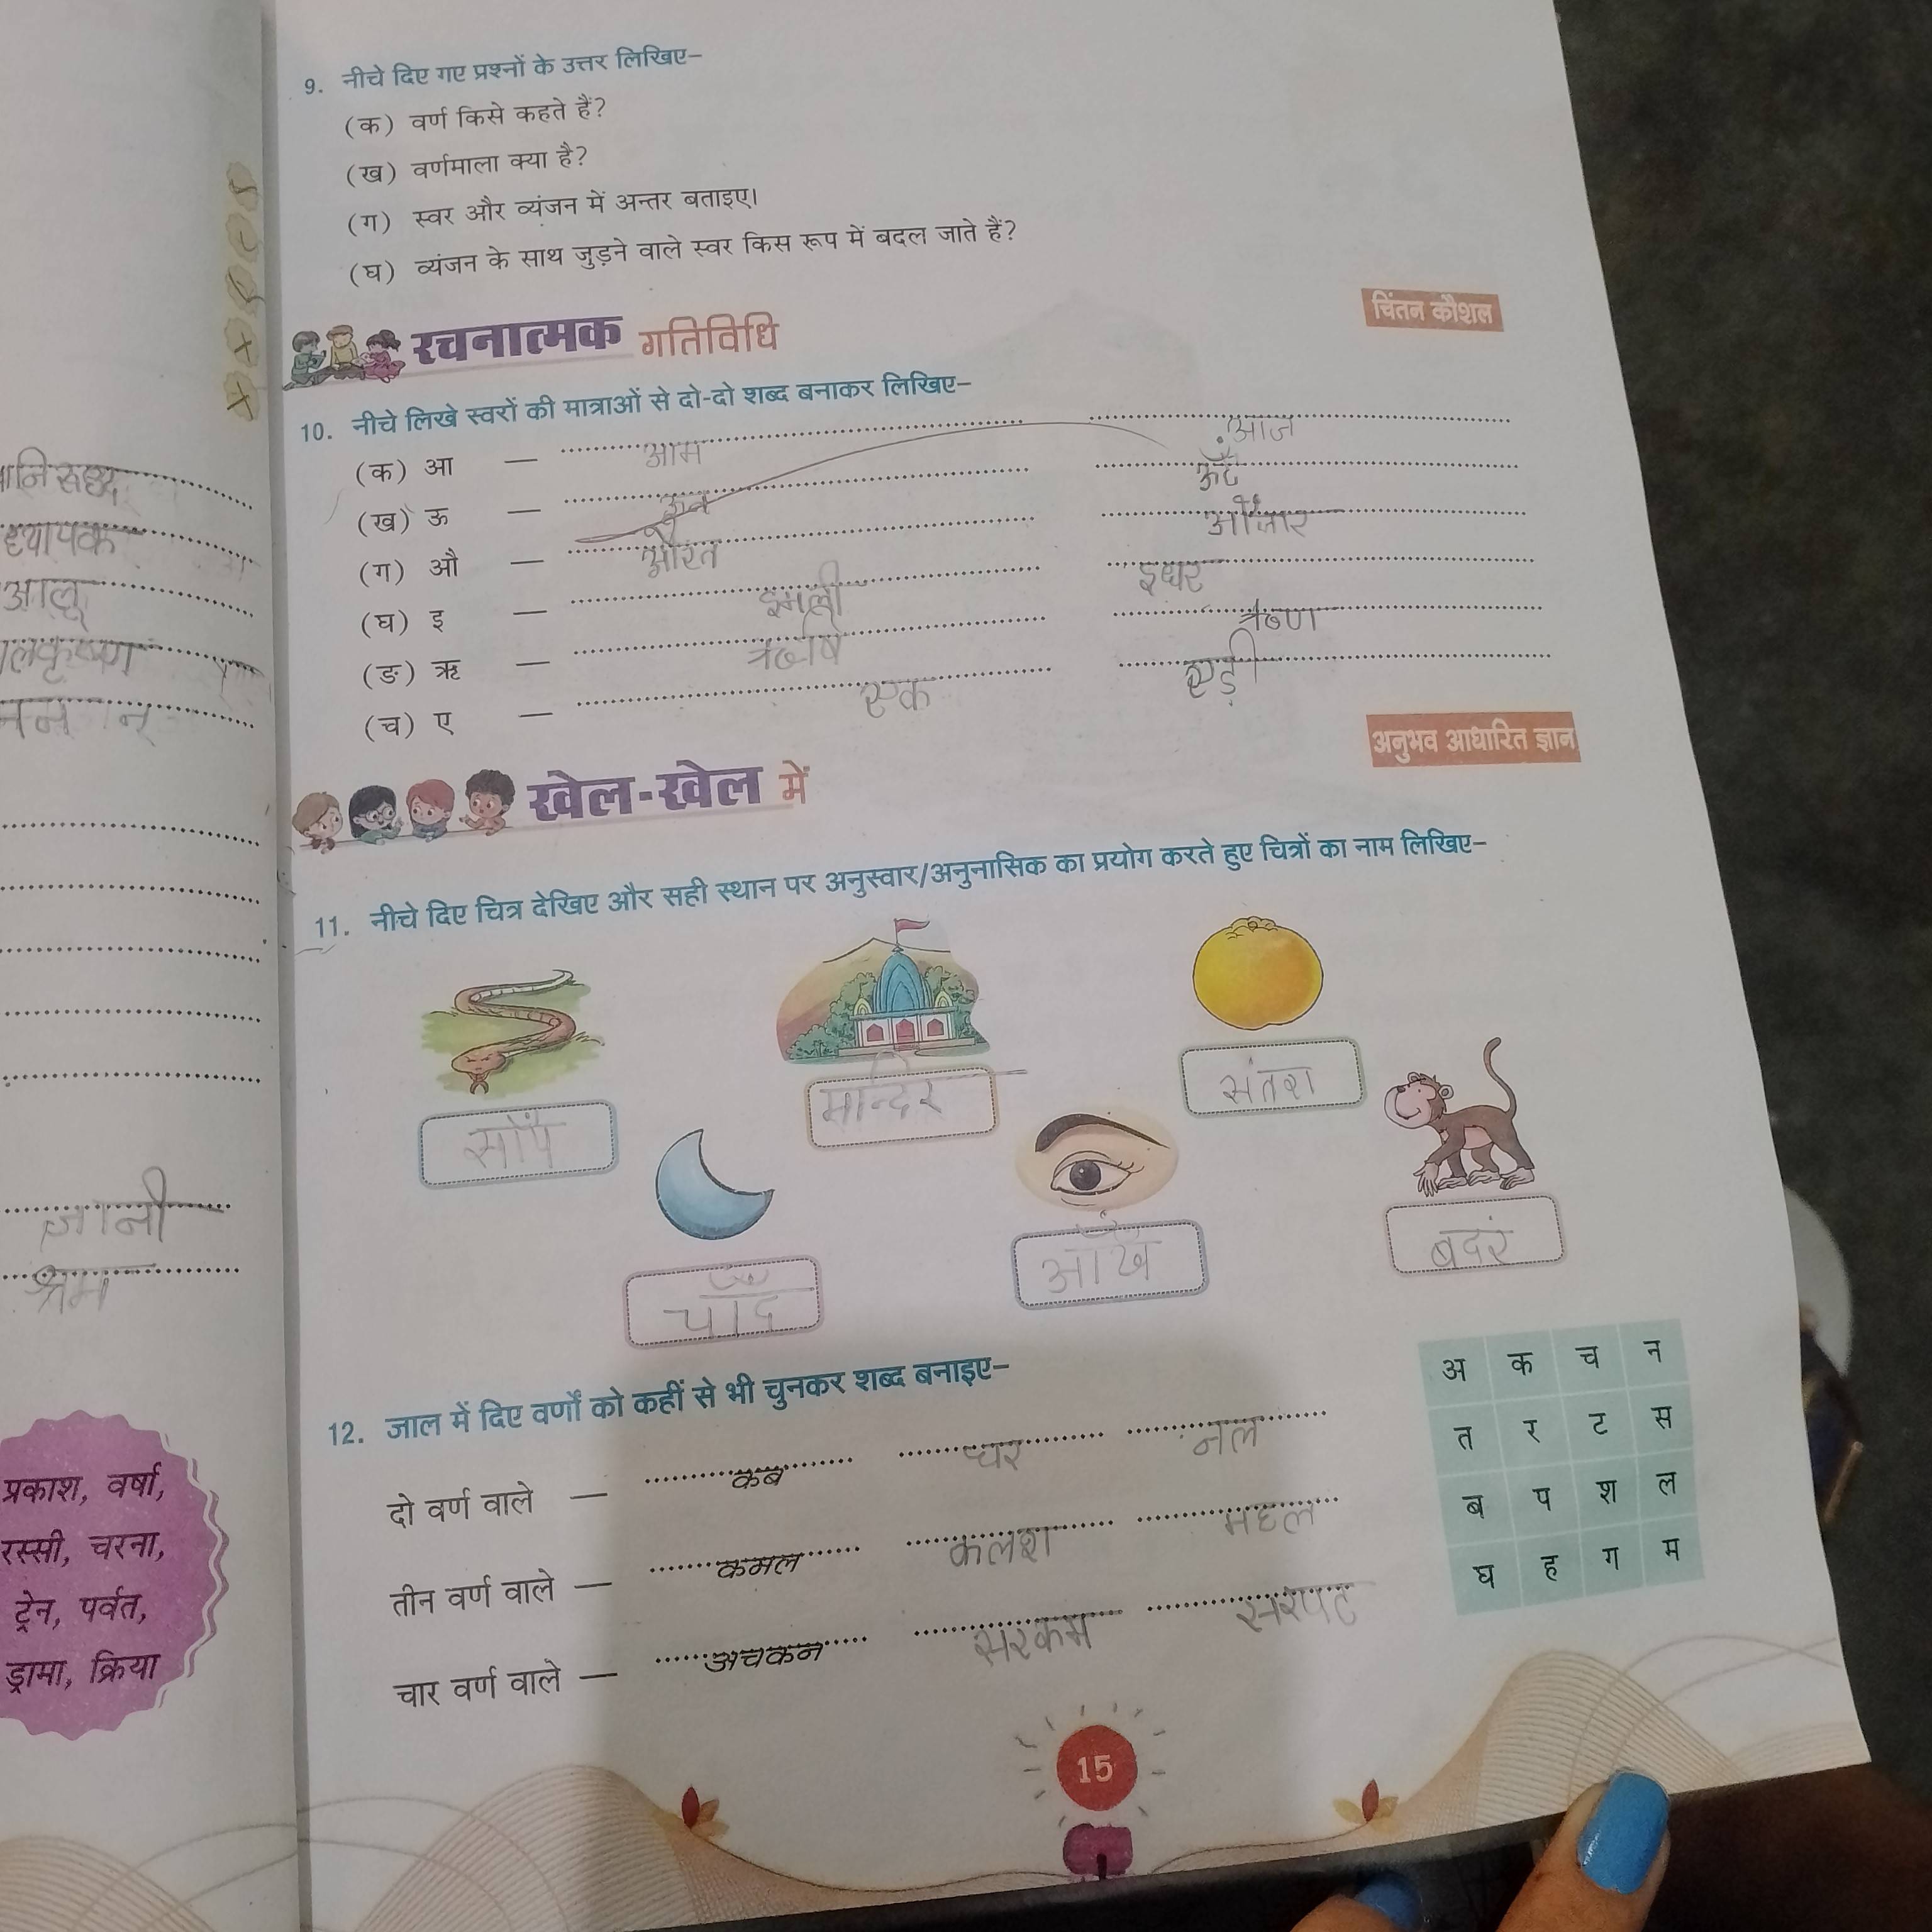 9. नीचे दिए गए प्रश्नों के उत्तर लिखिए–
(क) वर्ण किसे कहते हैं?
(ख) वर्णमाला क्या है?
(ग) स्वर और व्यंजन में अन्तर बताइए।
(घ) व्यंजन के साथ जुड़ने वाले स्वर किस रूप में बदल जाते हैं?
रचनात्मक गतिविधि
चिंतन कौशल
10. नीचे लिखे स्वरों की मात्राओं से दो-दो शब्द बनाकर लिखिए–
(क) आ — आम आज
(ख) ऊ — ऊन ऊँट
(ग) औ — औरत औजार
(घ) इ — इमली इधर
(ङ) ऋ — ऋषि ऋण
(च) ए — एक एड़ी
खेल-खेल में
अनुभव आधारित ज्ञान
11. नीचे दिए चित्र देखिए और सही स्थान पर अनुस्वार/अनुनासिक का प्रयोग करते हुए चित्रों का नाम लिखिए–
मन्दिर
संतरा
चाँद
आँख
बदरं
12. जाल में दिए वर्णों को कहीं से भी चुनकर शब्द बनाइए–
दो वर्ण वाले — कब घर नल
तीन वर्ण वाले — कमल कलश महल
चार वर्ण वाले — अचकन सरकम सरपट
अ क च न
त र ट स
ब प श ल
घ ह ग म
15
आलू
ज्ञानी
श्रम
प्रकाश, वर्षा,
रस्सी, चरना,
ट्रेन, पर्वत,
ड्रामा, क्रिया